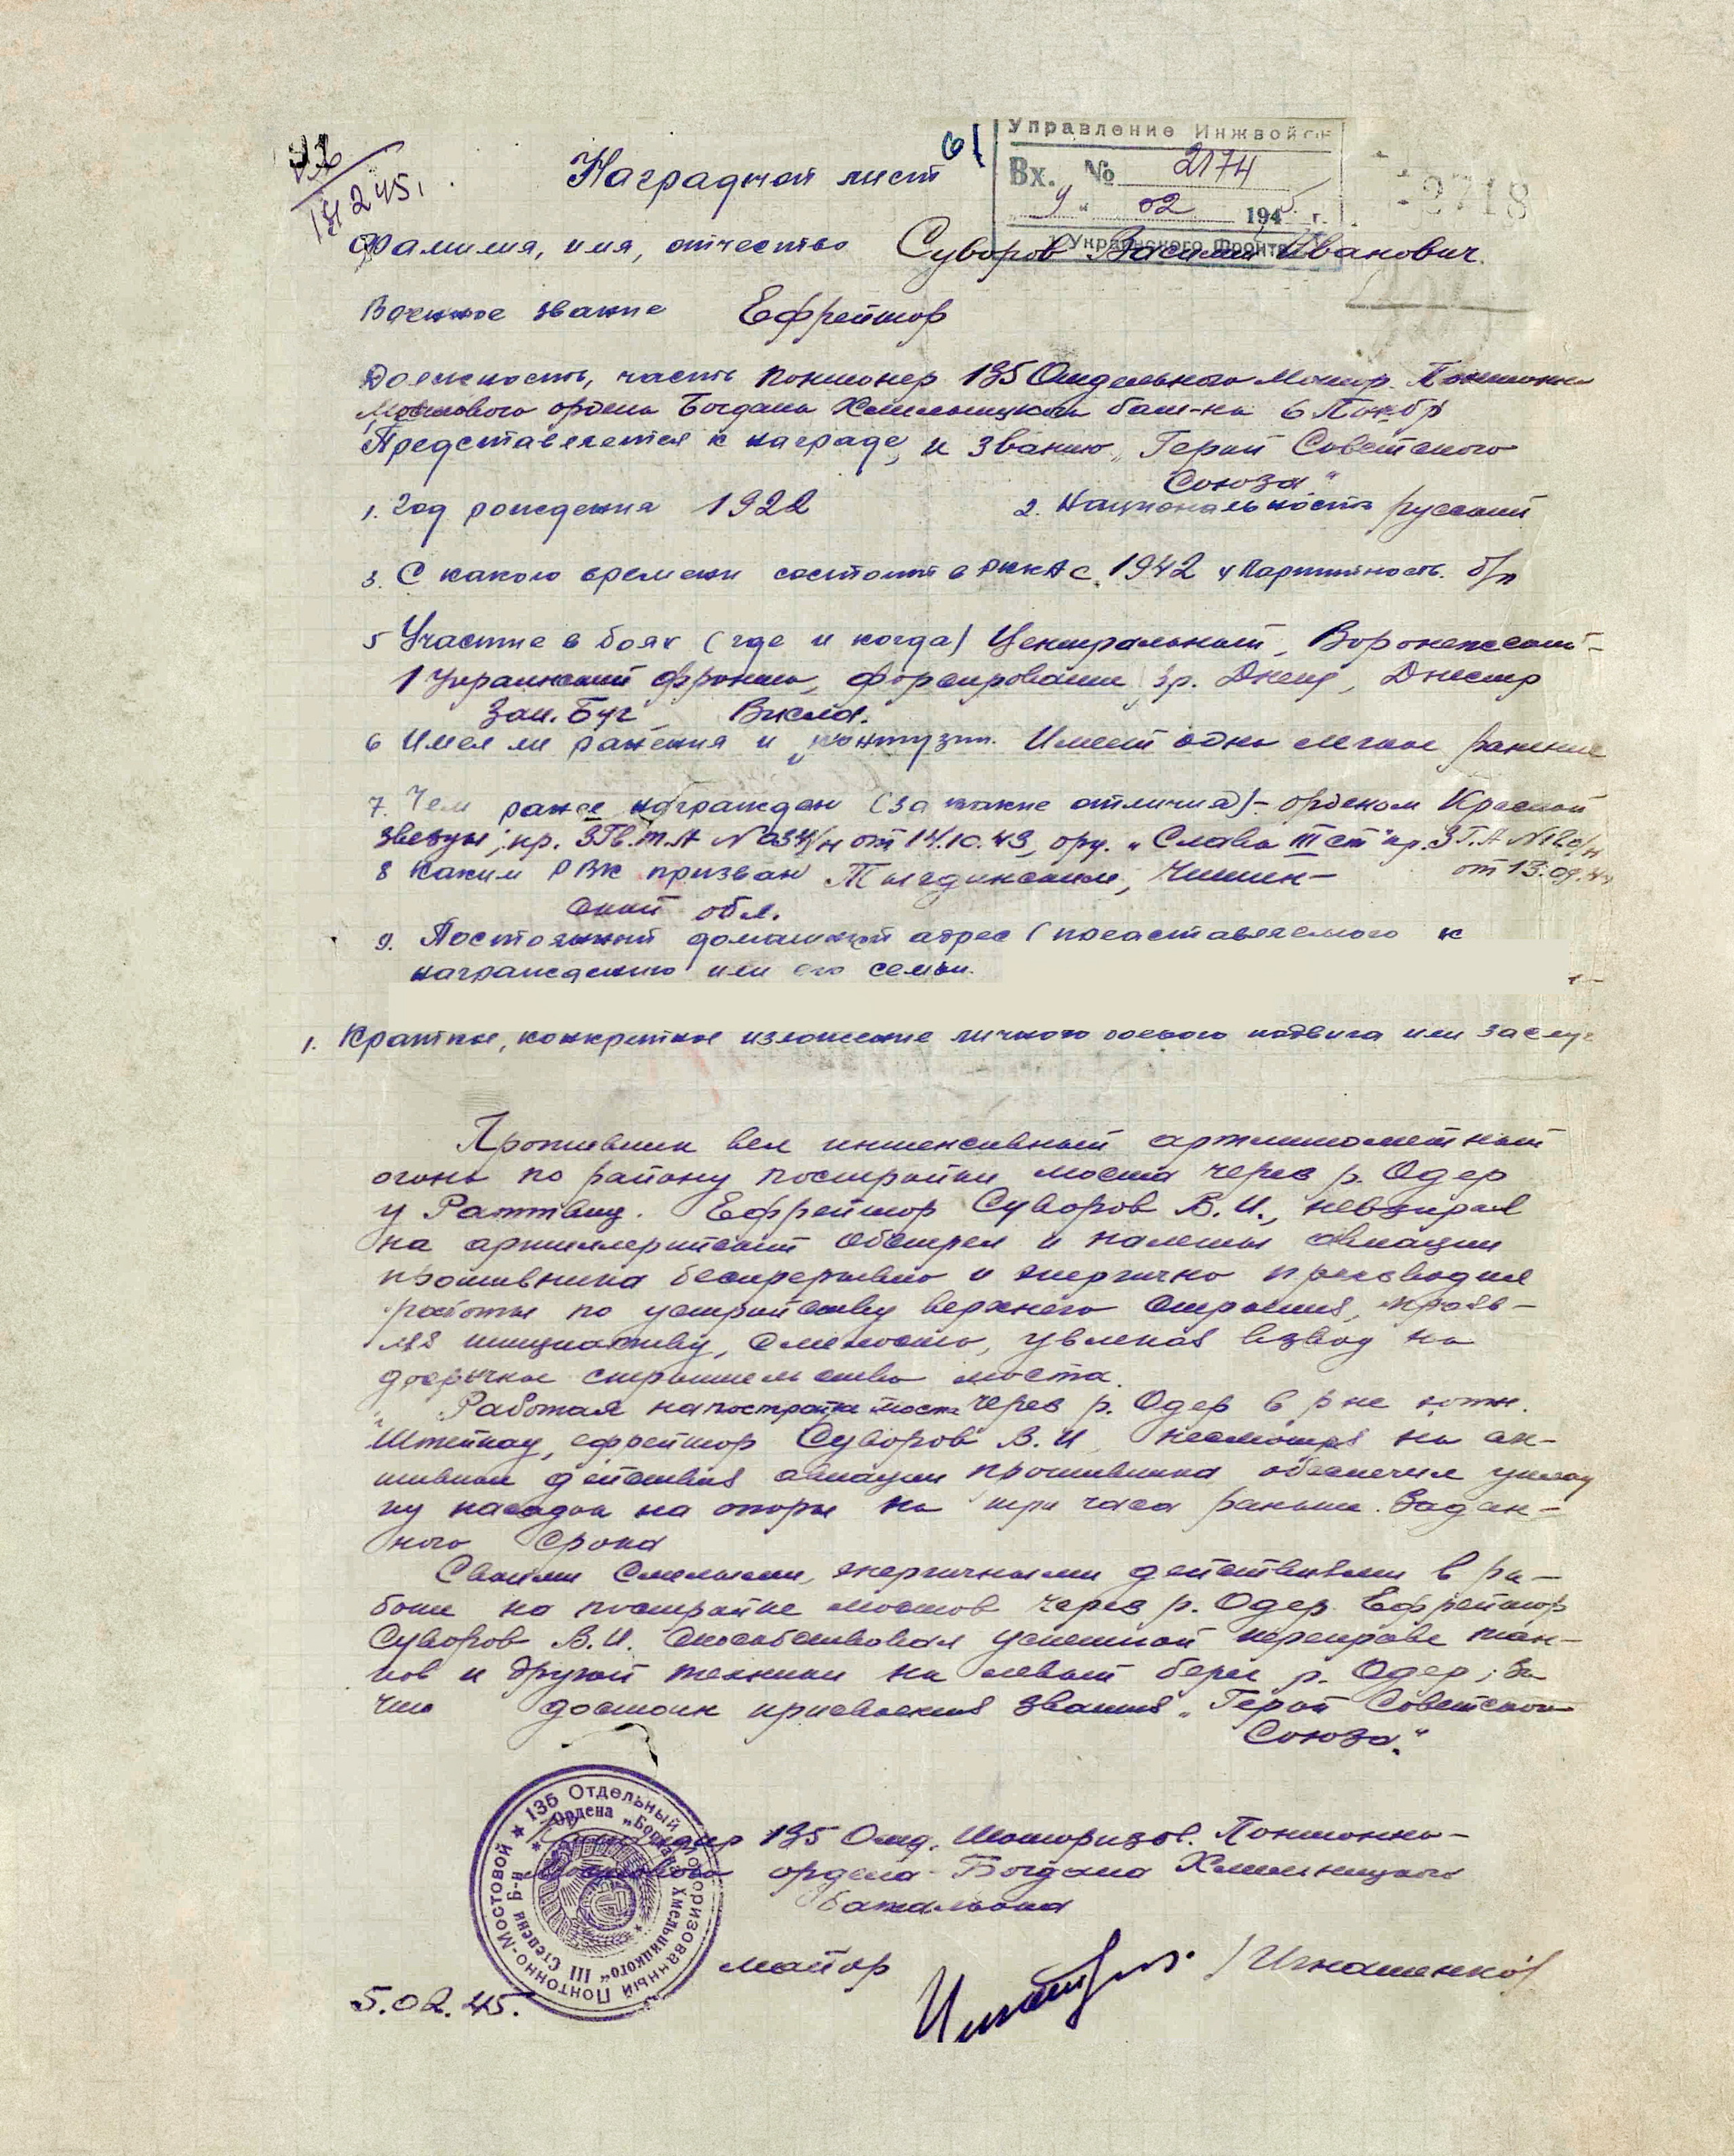 61
Управление Инжвойск
Вх. № 2174
9 " 02 1945 г.
Украинского Фронта
2718
12 2 45.
Наградной лист
Фамилия, имя, отчество Суворов Василий Иванович.
Военное звание Ефрейтор
Должность, часть понтонер 135 Отдельного Мотор. Понтонно
Мостового ордена Богдана Хмельницкого бат-на 6 Понбр
Представляется к награде, к званию „Герой Советского
Союза"
1. Год рождения 1922 2. Национальность русский
3. С какого времени состоит в РККА с 1942 4 Партийность. б/п
5 Участие в боях (где и когда) Центральный, Воронежский
1 Украинский фронты, форсирование р. Днепр, Днестр
Зап. Буг, Висла.
6 Имел ли ранения и контузии. Имеет одно легкое ранение
7. Чем ранее награжден (за какие отличия) - орденом Красной
звезды, пр. 3 Гв.т.А № 034/н от 14.10.43, орд. „Слава III ст" пр. 3 Г.А №180/н
от 13.09.44
8 Каким РВК призван Тыгдинским, Читин-
ской обл.
9. Постоянный домашний адрес (представляемого к
награждению или его семьи.
1. Краткое, конкретное изложение личного боевого подвига или заслуг
Противник вел интенсивный артминометный
огонь по району постройки моста через р. Одер
у Раттвиц. Ефрейтор Суворов В.И., невзирая
на артиллерийский обстрел и налеты авиации
противника беспрерывно и энергично производил
работы по устройству верхнего строения, прояв-
ляя инициативу, смелость, увлекая взвод на
досрочное строительство моста.
Работая на постройке моста через р. Одер в р-не южн.
Штейнау, ефрейтор Суворов В.И. несмотря на ак-
тивные действия авиации противника обеспечил уклад
ку насадок на опоры на три часа раньше задан-
ного срока
Своими смелыми, энергичными действиями в ра-
боте на постройке мостов через р. Одер Ефрейтор
Суворов В.И. способствовал успешной переправе тан-
ков и другой техники на левый берег р. Одер, за
что достоин присвоения звания „Герой Советского
Союза."
Командир 135 Отд. Моторизов. Понтонно-
Мостового ордена Богдана Хмельницкого
батальона
майор /Игнатенко/
135 Отдельный Моторизованный Понтонно-Мостовой
Ордена „Богдана Хмельницкого" III Степени б-н
5.02.45.